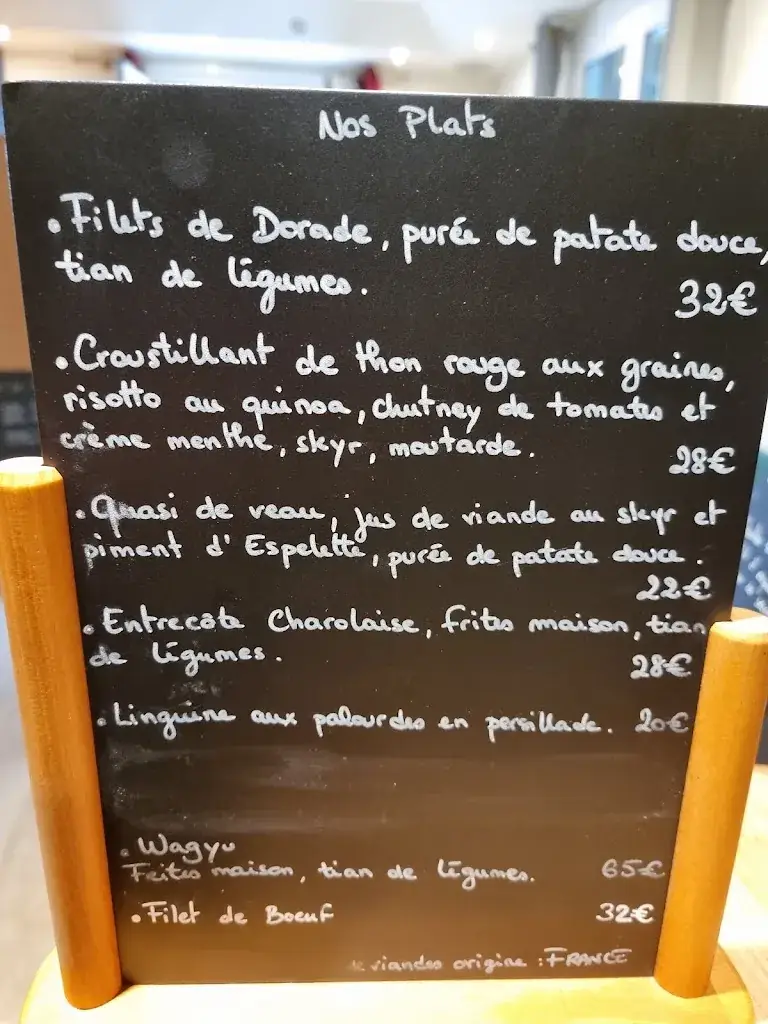 Nos Plats
• Filets de Dorade, purée de patate douce,
tian de légumes.
32€
• Croustillant de thon rouge aux graines,
risotto au quinoa, chutney de tomates et
crème menthe, skyr, moutarde.
28€
• Quasi de veau, jus de viande au skyr et
piment d'Espelette, purée de patate douce.
22€
• Entrecôte Charolaise, frites maison, tian
de légumes.
28€
• Linguine aux palourdes en persillade. 20€
• Wagyu
Frites maison, tian de légumes. 65€
• Filet de Boeuf 32€
viandes origine : FRANCE